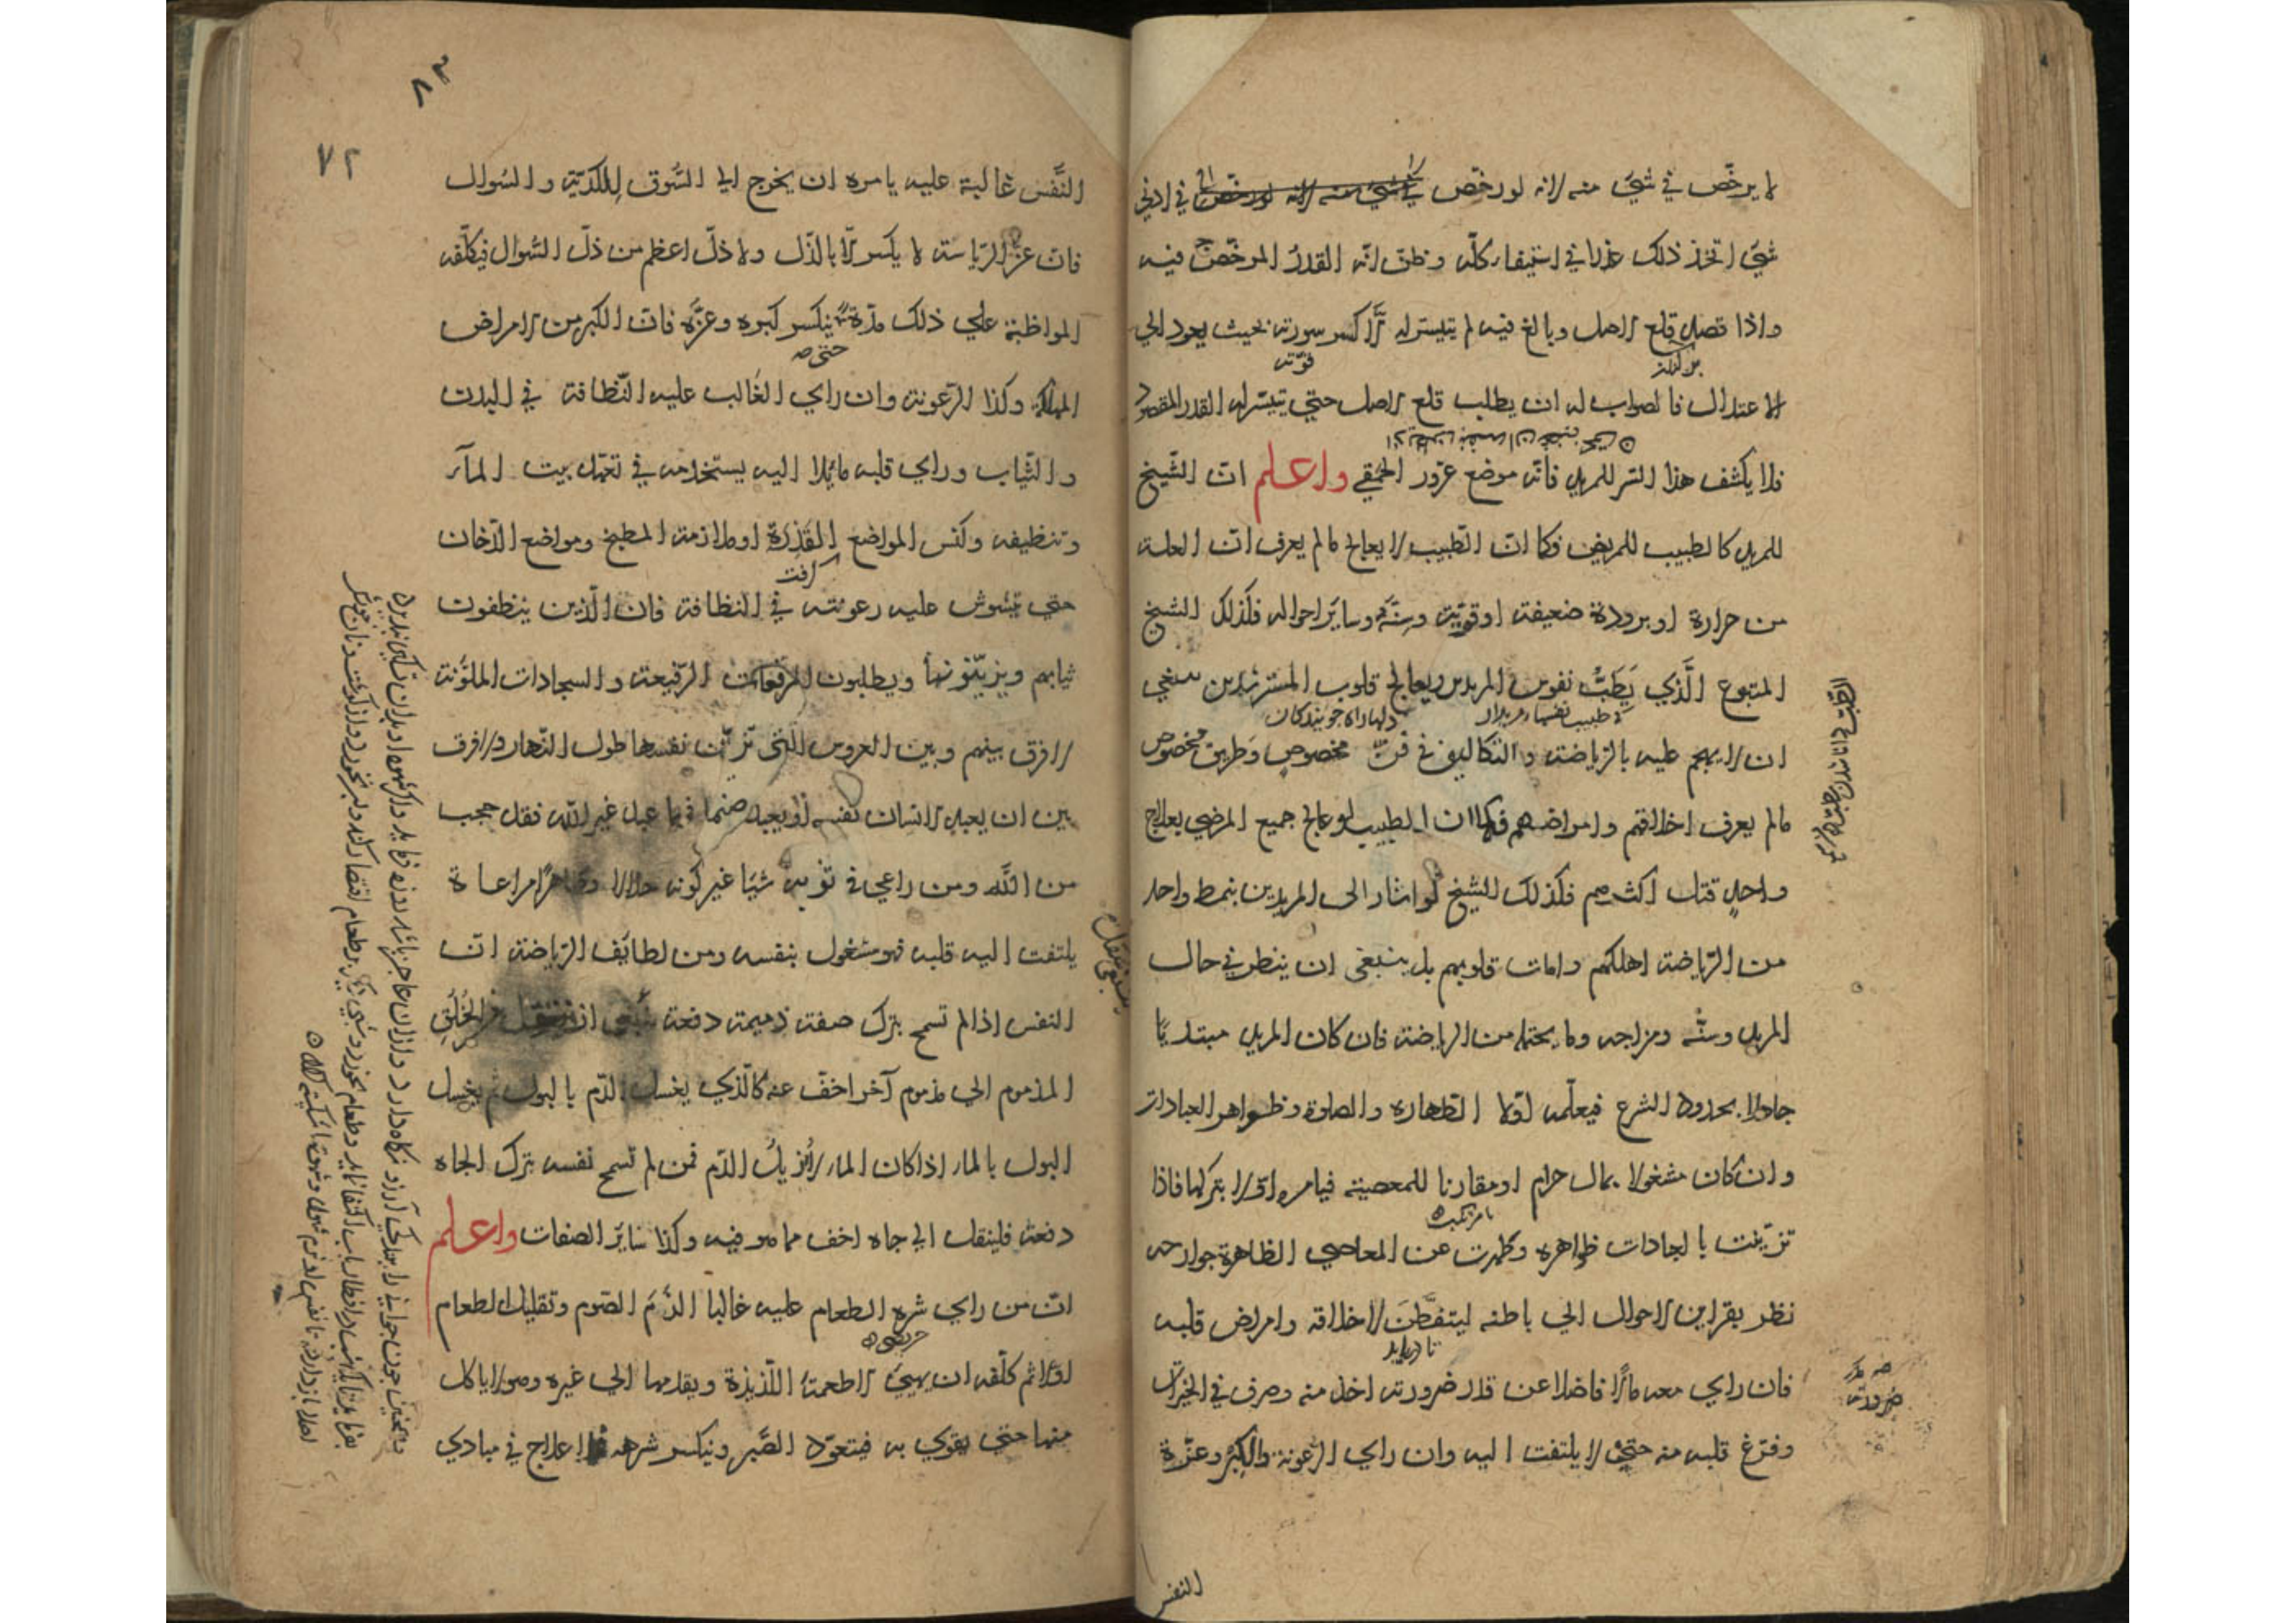 لا يرخّص في شيء منه لانه لو رخّص في شيء منه لانه لو رخّص في ادنى
شيء اتخذ ذلك عذرا في استيفاء كلّه وظنّ انّه القدرُ المرخّص فيه
واذا قصد قلع الاصل وبالغ فيه لم يتيسّر له الّا كسر سورته بحيث يعود الي
قوّته
الاعتدال فالصواب له ان يطلب قلع الاصل حتي يتيسّر له القدر المقصود
فلا يكشف هذا السّر للمريد فانّه موضع غرور الحمقي واعلم انّ الشّيخ
للمريد كالطبيب للمريض فكما انّ الطّبيب لا يعالج مالم يعرف انّ العلة
من حرارة او برودة ضعيفة او قوّية وسنّه وساير احواله فكذلك الشيخ
المتبوع الّذي يَطَبُّ نفوس المريدين ويعالج قلوب المسترشدين ينبغي
ان لا يهجم عليه بالرّياضة والتكاليف في فنّ مخصوصٍ وطريق مخصوص
مالم يعرف اخلاقهم وامراضهم فكما ان الطبيب لو عالج جميع المرضي بعلاج
واحدٍ قتل اكثرهم فكذلك الشيخ لو اشار الى المريدين بنمط واحد
من الرّياضة اهلكهم وامات قلوبهم بل ينبغى ان ينظر في حال
المريد وسنّه ومزاجه وما يحتمله من الرياضة فان كان المريد مبتديًا
جاهلا بحدود الشرع فيعلّمه اوّلا الطّهارة والصلوة وظواهر العبادات
وان كان مشغولا بمال حرام او مقارنا للمعصية فيامره اوّلا بتركها فاذا
تزيّنت بالعبادات ظواهره وطهرت عن المعاصي الظاهرة جوارحه
نظر بقراين الاحوال الي باطنه ليتفطَّنَ لاخلاقه وامراض قلبه
تا دريابد
فان راي معه مالًا فاضلا عن قدر ضرورته اخذ منه وصرف في الخيرات
وفرّغ قلبه منه حتي لا يلتفت اليه وان راي الرّعونة والكبر وعزّة
النفس
٧٢
النّفس غالبة عليه يامره ان يخرج الي السّوق للكدية والسّوال
فانّ عزّ الرّياسة لا يكسر الّا بالذّل ولا ذلّ اعظم من ذلّ السّوال فيكلّفه
المواظبة علي ذلك مدّة ينكسر كبره وعزّه فانّ الكبر من الامراض
حتى
المهلكة وكذا الرّعونة وان راي الغالب عليه النّظافة في البدن
والثّياب وراي قلبه مائلا اليه يستخدمه في تعهّد بيت المآء
وتنظيفه وكنس المواضع القَذِرَة او ملازمة المطبخ ومواضع الدّخان
حتي يتشوش عليه رعونته في النظافة فان الّذين ينظفون
ثيابهم ويزيّنونها ويطلبون المرقعات الرّفيعة والسجادات الملوّنة
لا فرق بينهم وبين العروس الّتي تزيّن نفسها طول النّهار ولا فرق
بين ان يعبد الانسان نفسه او يعبد صنما فمهما عبد غير الله فقد حجب
من الله ومن راعي في ثوبه شيئا غير كونه حلالا وطاهرا مراعاة
يلتفت اليه قلبه فهو مشغول بنفسه ومن لطائف الرّياضة انّ
النفس اذا لم تسمح بترك صفة ذميمة دفعة ينبغي ان ينتقل من الخُلُقِ
المذموم الي مذموم آخر اخفّ عنه كالّذي يغسل الدّم بالبول ثم يغسل
البول بالماء اذا كان الماء لا يُزيلُ الدّم فمن لم تسمح نفسه بترك الجاه
دفعة فلينقل الي جاه اخف مما هو فيه وكذا سائر الصفات واعلم
انّ من راي شره الطعام عليه غالبا الزمَ الصّوم وتقليل الطعام
اوّلا ثم كلّفه ان يهيئ الاطعمة اللّذيذة ويقدمها الي غيره وهو لا ياكل
منها حتي يقوي به فيتعوّد الصّبر وينكسر شرهه فالعلاج في مبادي